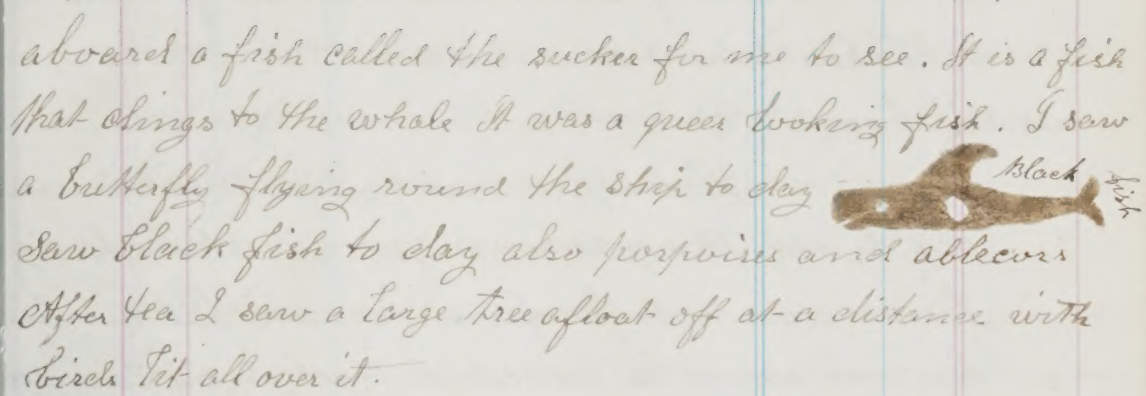 aboard a fish called the sucker for me to see. It is a fish
that clings to the whale It was a queer looking fish. I saw
a butterfly flying round the ship to day
Black fish
Saw black fish to day also porpoises and ablecors
After tea I saw a large tree afloat off at a distance with
birds lit all over it.